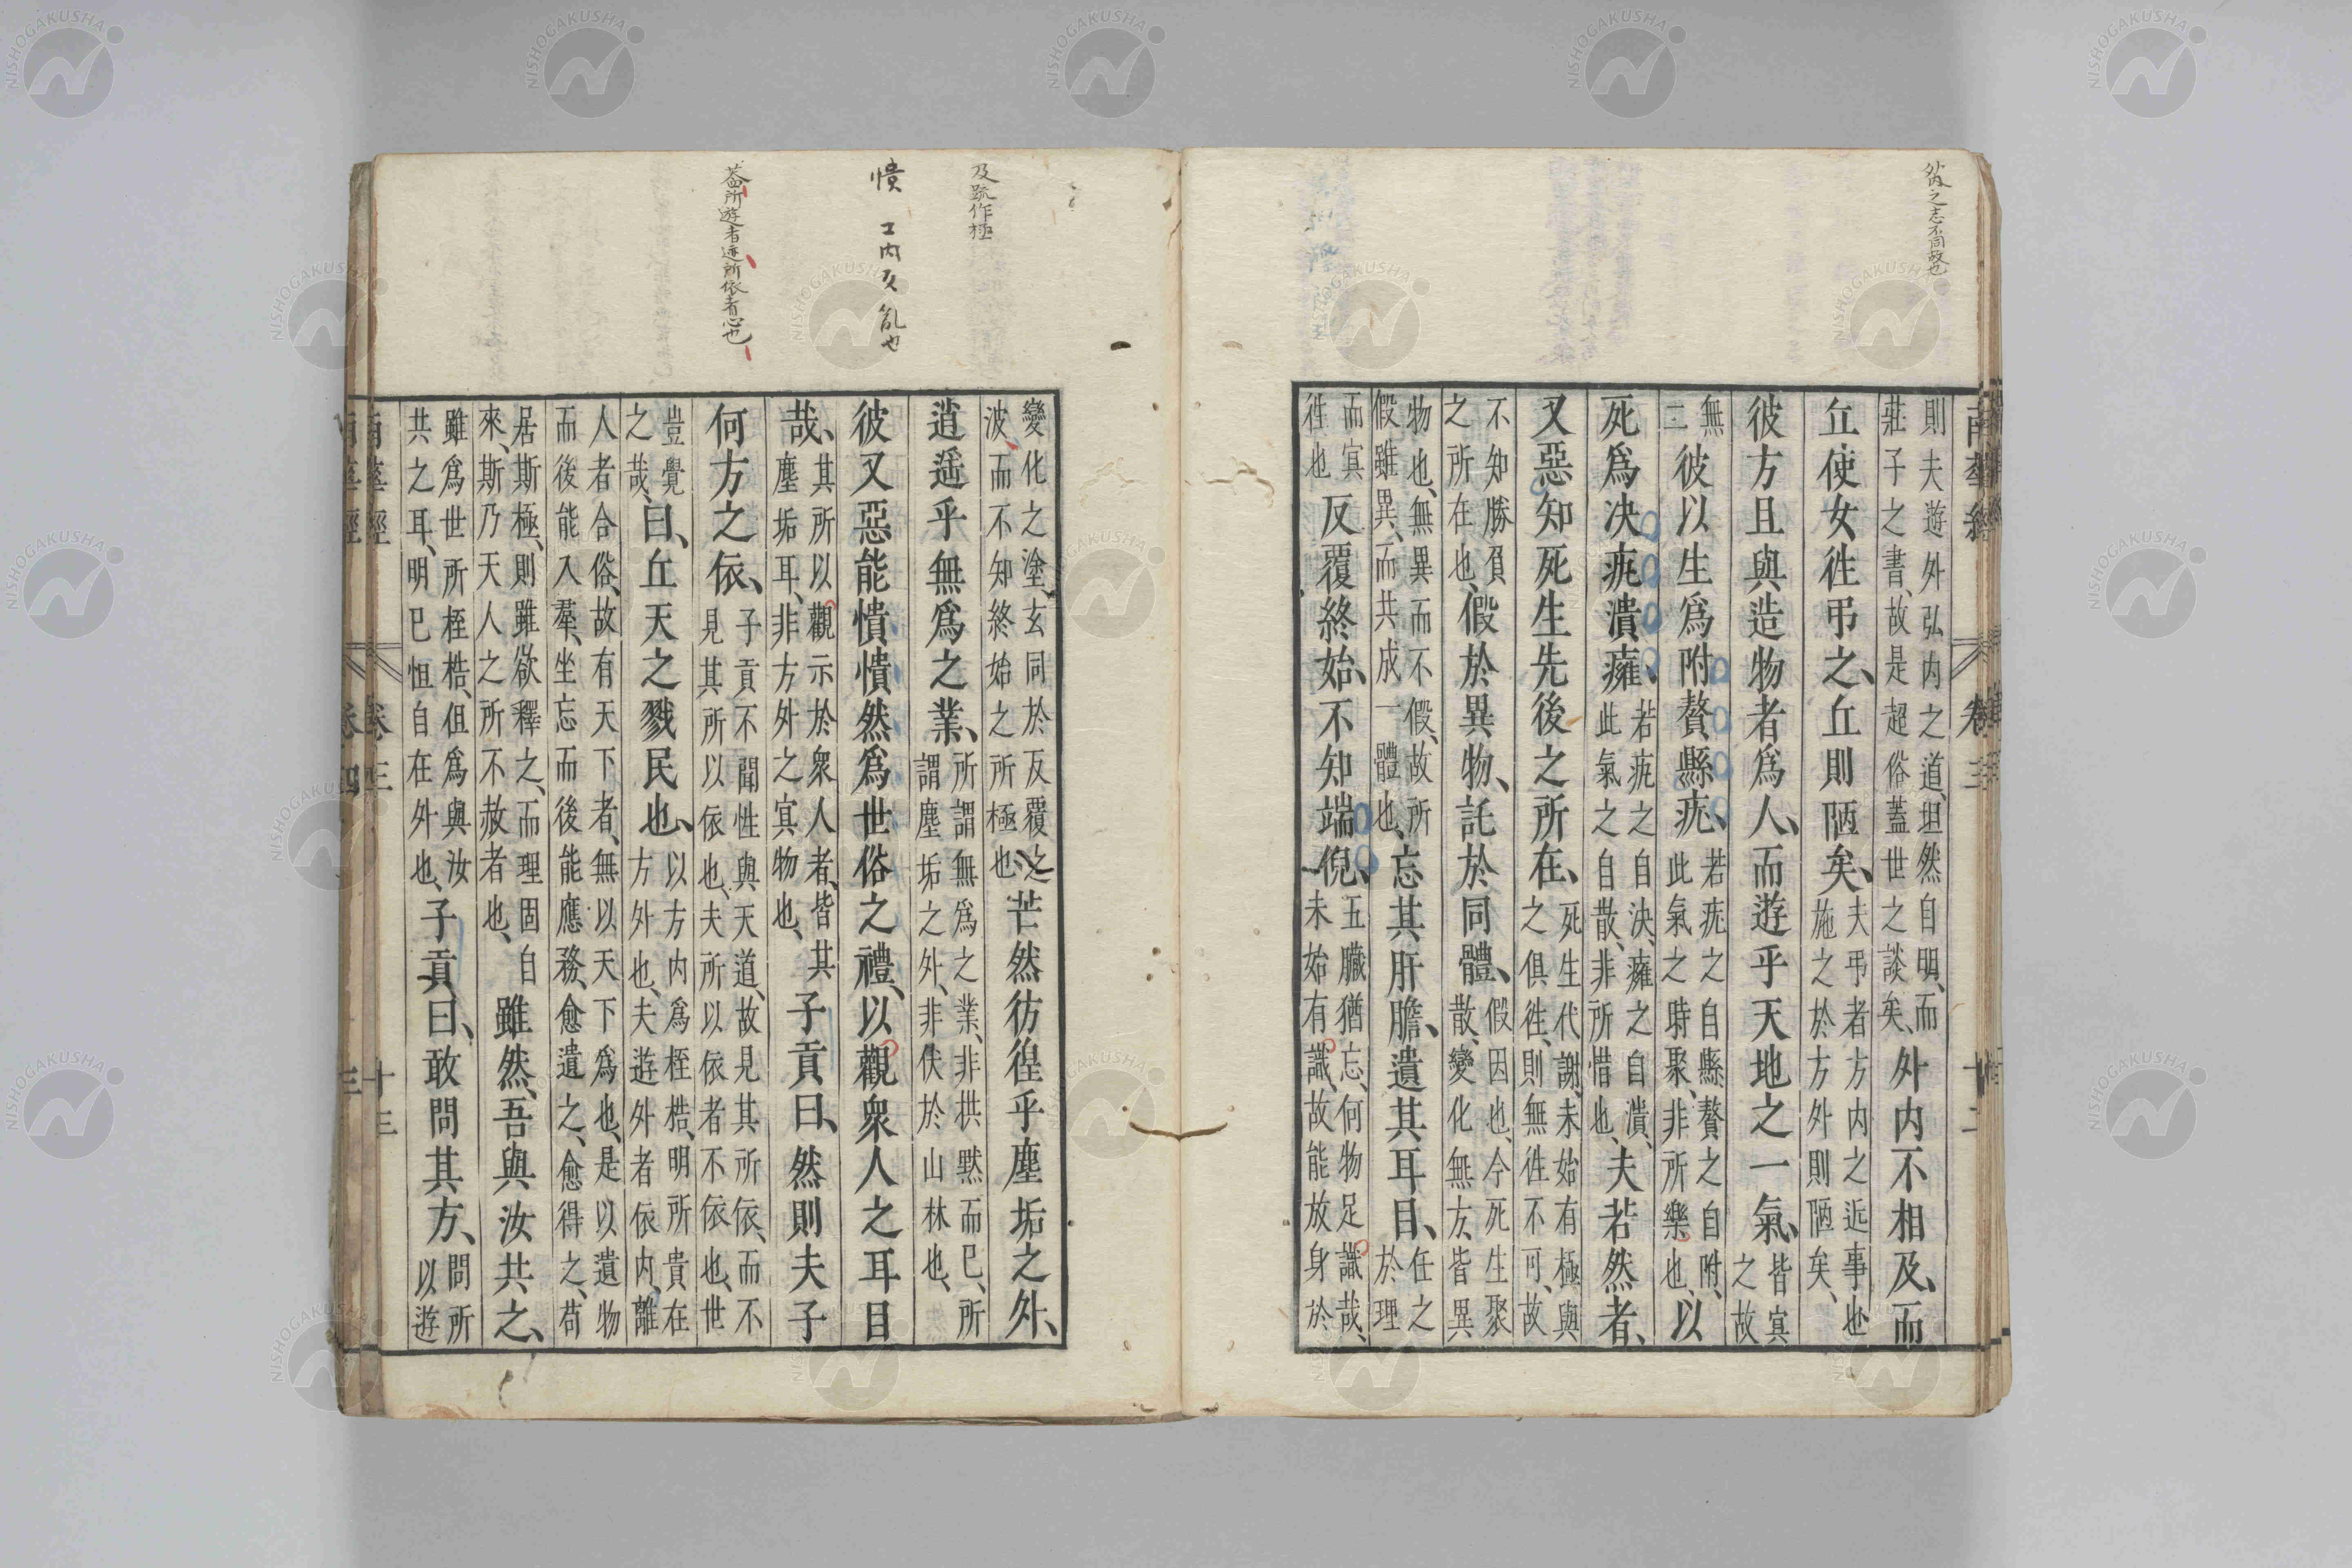 外内之志不同故也
南華經 卷三 十二
則夫遊外弘内之道、坦然自明、而莊子之書、故是超俗蓋世之談矣、外内不相及、而
丘使女徃弔之、丘則陋矣、夫弔者方内之近事也施之於方外則陋矣、
彼方且與造物者爲人、而遊乎天地之一氣、皆㝠之故
無二彼以生爲附贅縣疣、若疣之自縣贅之自附、此氣之時聚、非所樂也、以
死爲决疣潰癰、若疣之自决、癰之自潰、此氣之自散、非所惜也、夫若然者、
又惡知死生先後之所在、死生代謝、未始有極與之俱徃、則無徃不可、故
不知勝負之所在也、假於異物、託於同體、假因也、今死生聚散、變化無方、皆異
物也、無異而不假、故所假雖異、而共成一體也、忘其肝膽、遺其耳目、任之於理
而㝠徃也反覆終始、不知端倪、五臟猶忘、何物足識哉、未始有識、故能放身於
及疏作極
憒 工内反亂也
蓋所遊者迹所依者心也
變化之塗、玄同於反覆之波、而不知終始之所極也芒然彷徨乎塵垢之外、
逍遥乎無爲之業、所謂無爲之業、非拱黙而已、所謂塵垢之外、非伏於山林也、
彼又惡能憒憒然爲世俗之禮、以觀衆人之耳目
哉、其所以觀示於衆人者、皆其塵垢耳、非方外之㝠物也、子貢曰、然則夫子
何方之依、子貢不聞性與天道、故見其所依、而不見其所以依也、夫所以依者不依也、世
豈覺之哉、曰、丘天之戮民也、以方内爲桎梏、明所貴在方外也、夫遊外者依内、離
人者合俗、故有天下者、無以天下爲也、是以遺物而後能入羣、坐忘而後能應務、愈遺之、愈得之、苟
居斯極、則雖欲釋之、而理固自來、斯乃天人之所不赦者也、雖然、吾與汝共之、
雖爲世所桎梏、但爲與汝共之耳、明已恒自在外也、子貢曰、敢問其方、問所以遊
南華經 卷三 十三